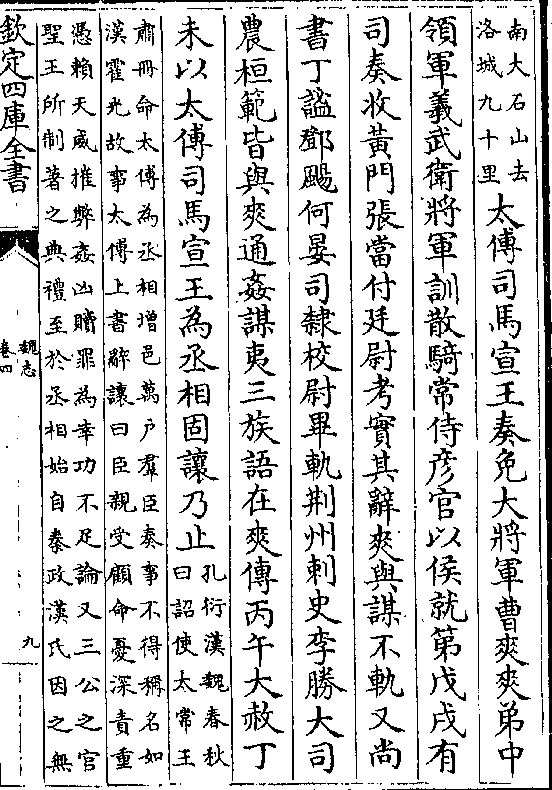 南大石山去
洛城九十里
太傅司馬宣王奏免大將軍曹爽爽弟中
領軍義武衛將軍訓散騎常侍彥官以侯就第戊戌有
司奏收黃門張當付廷尉考實其辭爽與謀不軌又尚
書丁謐鄧颺何晏司隸校尉畢軌荆州刺史李勝大司
農桓範皆與爽通姦謀夷三族語在爽傳丙午大赦丁
未以太傅司馬宣王為丞相固讓乃止
孔衍漢魏春秋
曰詔使太常王
肅冊命太傅為丞相增邑萬户羣臣奏事不得稱名如
漢霍光故事太傅上書辭讓曰臣親受顧命憂深責重
憑賴天威摧弊姦凶贖罪為幸功不足論又三公之官
聖王所制著之典禮至於丞相始自秦政漢氏因之無
欽定四庫全書
魏志
卷四
九